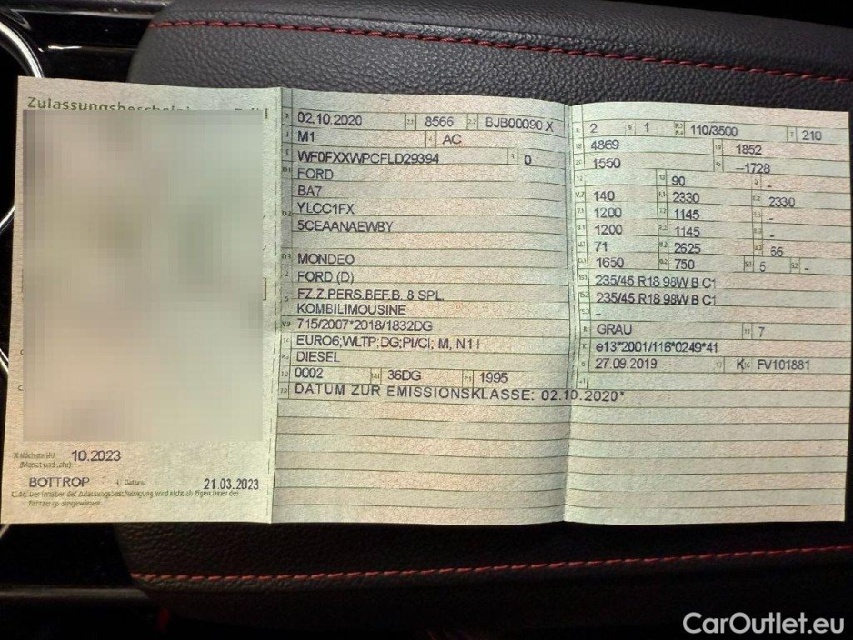 Zulassungsbescheini
10.2023
BOTTROP 21.03.2023
02.10.2020 8566 BJB00090 X
M1 AC
WF0FXXWPCFLD29394 0
FORD
BA7
YLCC1FX
5CEAANAEWBY
MONDEO
FORD (D)
FZ.Z.PERS.BEF.B. 8 SPL.
KOMBILIMOUSINE
715/2007*2018/1832DG
EURO6;WLTP;DG;PI/CI; M, N1 I
DIESEL
0002 36DG 1995
DATUM ZUR EMISSIONSKLASSE: 02.10.2020*
2 1 110/3500 210
4869 1852
1550 –1728
90 -
140 2330 2330
1200 1145 -
1200 1145 -
71 2625 66
1650 750 5 -
235/45 R18 98W B C1
235/45 R18 98W B C1
-
GRAU 7
e13*2001/116*0249*41
27.09.2019 K FV101881
CarOutlet.eu